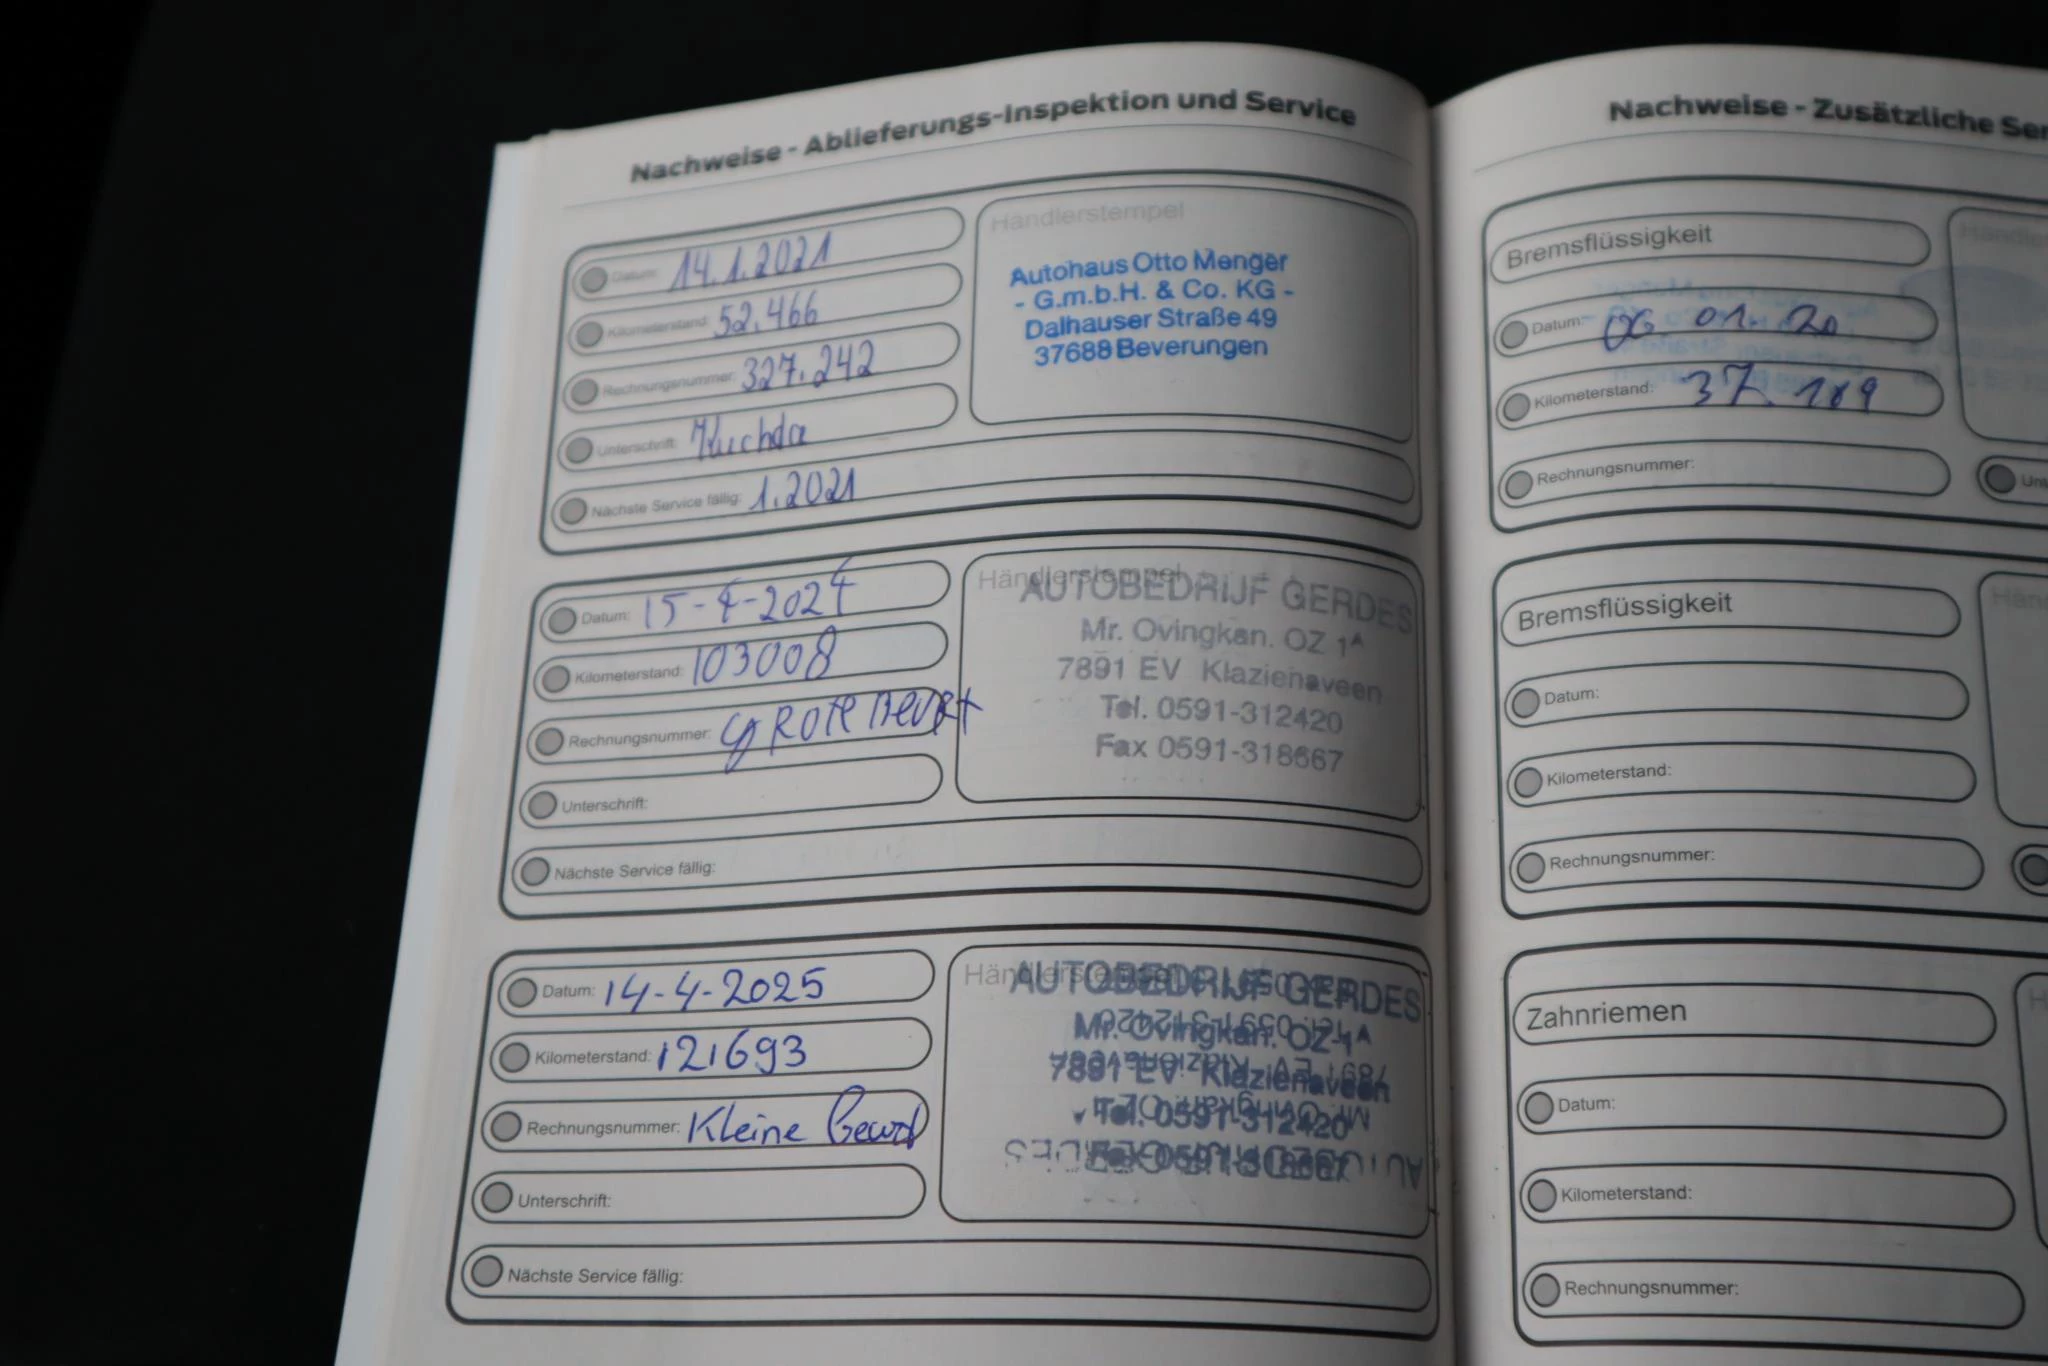 Nachweise - Ablieferungs-Inspektion und Service
Datum: 14.1.2021
Kilometerstand: 52.466
Rechnungsnummer: 327.242
Unterschrift: Kuchda
Nächste Service fällig: 1.2021
Händlerstempel
Autohaus Otto Menger
- G.m.b.H. & Co. KG -
Dalhauser Straße 49
37688 Beverungen
Datum: 15-4-2024
Kilometerstand: 103008
Rechnungsnummer: GROTE Beurt
Unterschrift:
Nächste Service fällig:
Händlerstempel
AUTOBEDRIJF GERDES
Mr. Ovingkan. OZ 1A
7891 EV Klazienaveen
Tel. 0591-312420
Fax 0591-318667
Datum: 14-4-2025
Kilometerstand: 121693
Rechnungsnummer: Kleine Beurt
Unterschrift:
Nächste Service fällig:
AUTOBEDRIJF GERDES
Mr. Ovingkan. OZ 1A
7891 EV Klazienaveen
Tel. 0591-312420
Fax 0591-318667
Nachweise - Zusätzliche Ser
Bremsflüssigkeit
Datum: 06 01. 20
Kilometerstand: 37.189
Rechnungsnummer:
Bremsflüssigkeit
Datum:
Kilometerstand:
Rechnungsnummer:
Zahnriemen
Datum:
Kilometerstand:
Rechnungsnummer: